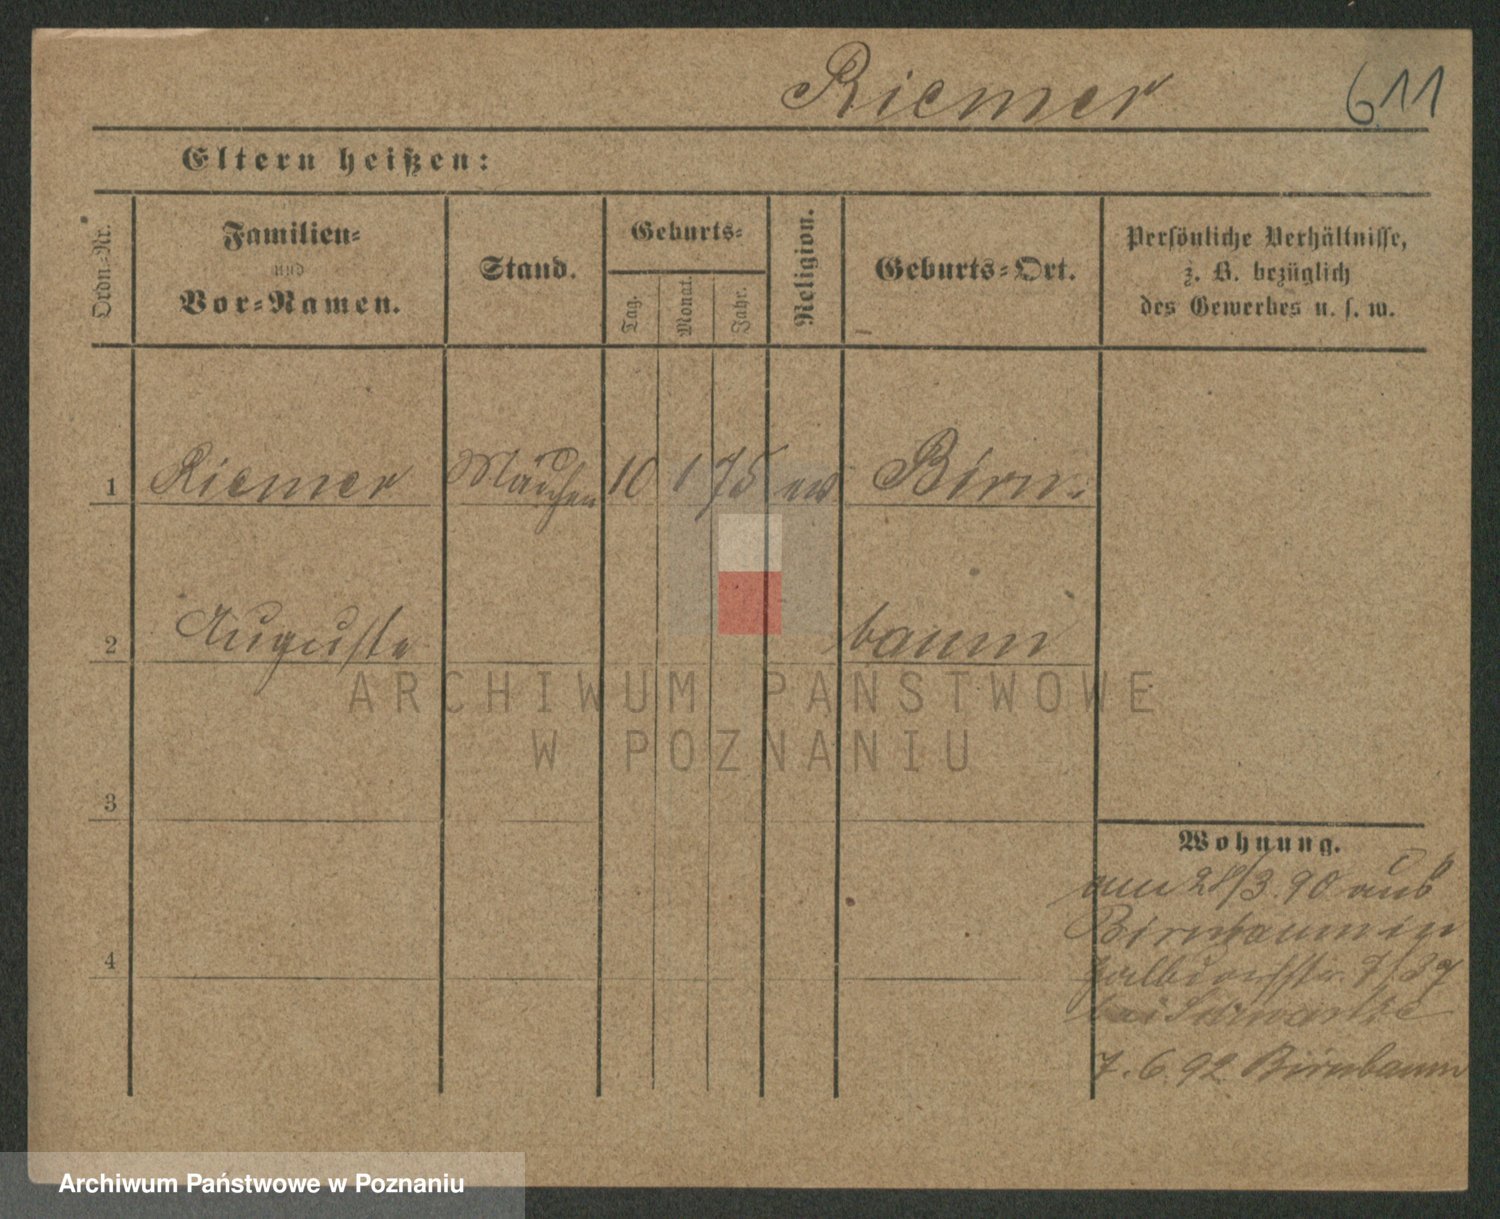 Riemer 611
Eltern heißen:
Ordn.-Nr.
Familien-
und
Vor-Namen.
Stand.
Geburts-
Tag.
Monat.
Jahr.
Religion.
Geburts-Ort.
Persönliche Verhältnisse,
z. B. bezüglich
des Gewerbes u. s. w.
1 Riemer Mädchen 10 1 75 ev Birn-
2 Auguste baum
3
4
Wohnung.
am 28/3.90 aus
Birnbaum in
bei
7.6.92 Birnbaum
ARCHIWUM PANSTWOWE
W POZNANIU
Archiwum Państwowe w Poznaniu